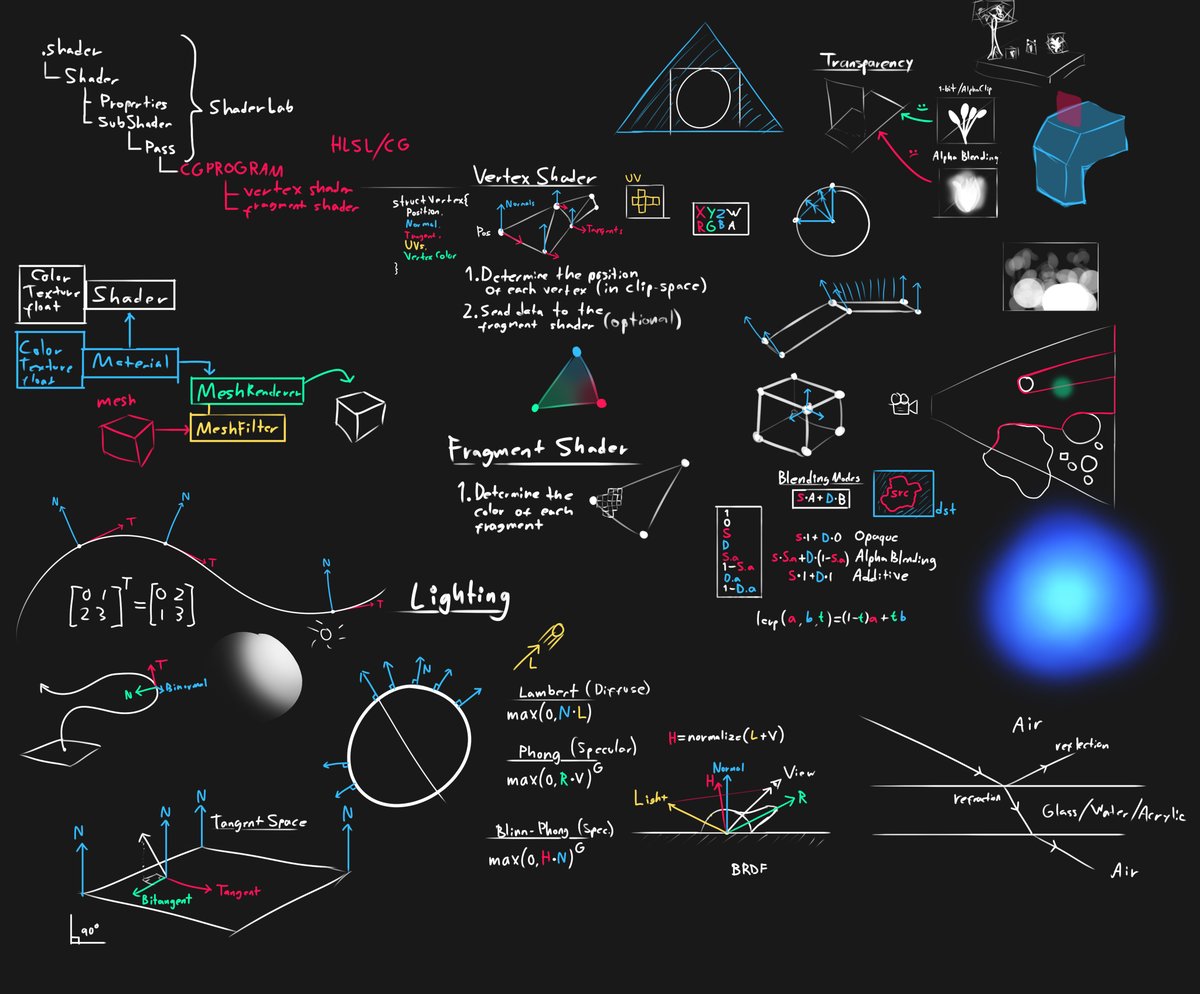 .shader
Shader
Properties
SubShader
Pass
ShaderLab
CGPROGRAM
vertex shader
fragment shader
HLSL/CG
Vertex Shader
struct Vertex{
Position.
Normal.
Tangent.
UVs.
Vertex Color
}
Pos
Normals
Tangents
UV
XYZW
RGBA
1. Determine the position
of each vertex (in clip-space)
2. Send data to the
fragment shader (optional)
Transparency
1-bit/AlphaClip
:)
Alpha Blending
:(
Color
Texture
float
Shader
Color
Texture
float
Material
MeshRenderer
MeshFilter
mesh
Fragment Shader
1. Determine the
color of each
fragment
Blending Modes
S·A+D·B
src
dst
1
0
S
D
S.a
1-S.a
D.a
1-D.a
S·1+D·0 Opaque
S·S.a+D·(1-S.a) Alpha Blending
S·1+D·1 Additive
lerp(a,b,t)=(1-t)a+tb
N
T
N
T
N
T
[0 1
2 3]ᵀ=[0 2
1 3]
T
N
Binormal
Lighting
L
N
Lambert (Diffuse)
max(0,N·L)
Phong (Specular)
max(0,R·V)ᴳ
Blinn-Phong (Spec)
max(0,H·N)ᴳ
H=normalize(L+V)
Light
H
Normal
View
R
BRDF
Air
reflection
refraction
Glass/Water/Acrylic
Air
Tangent Space
N
N
N
N
Bitangent
Tangent
90°